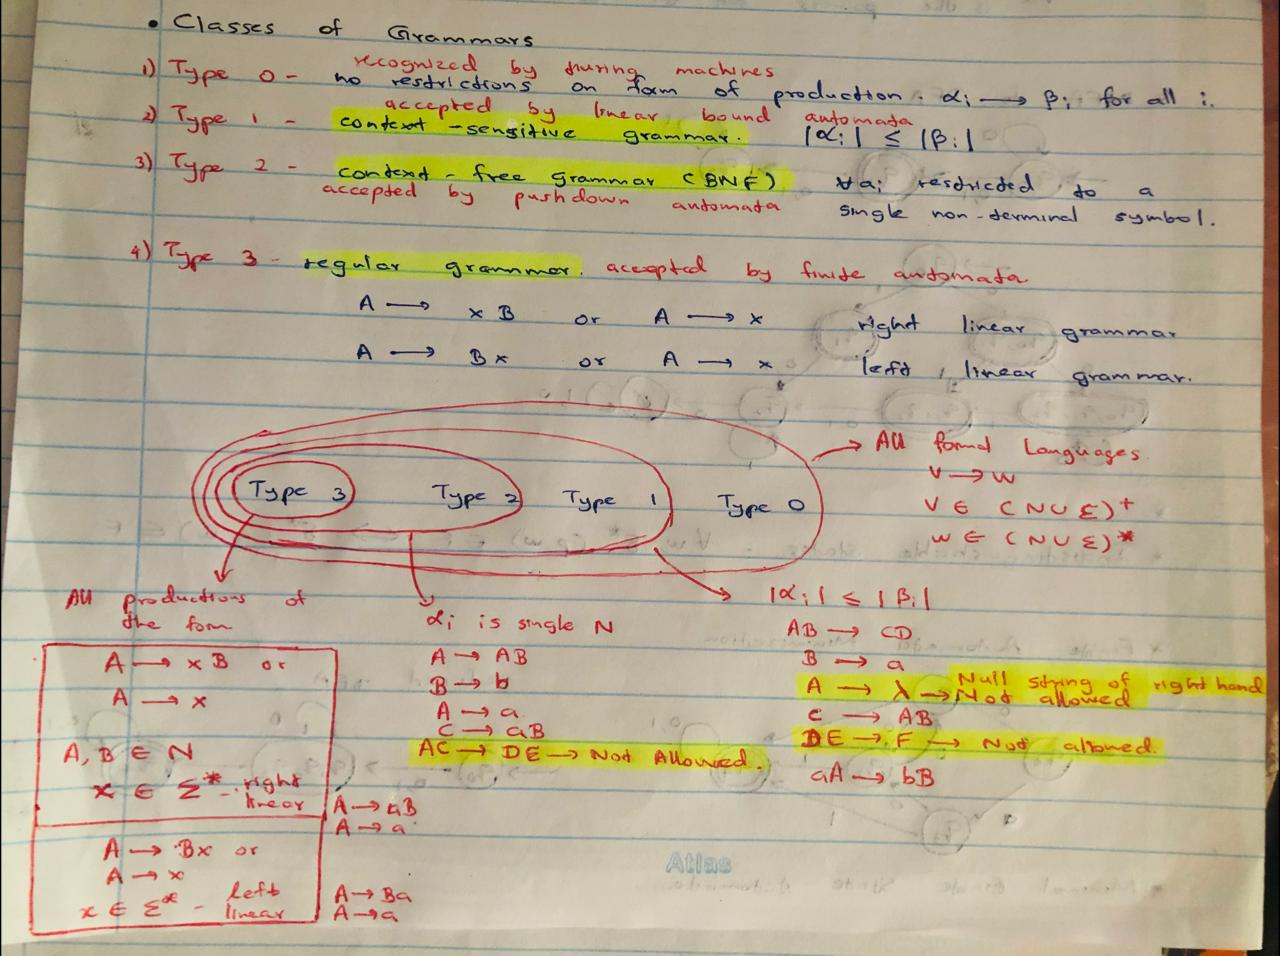 • Classes of Grammars
1) Type 0 - recognized by turing machines
no restrictions on form of production. αi → βi for all i.
2) Type 1 - accepted by linear bound automata
context-sensitive grammar. |αi| ≤ |βi|
3) Type 2 - context-free grammar (BNF) ∀αi restricted to a
accepted by pushdown automata single non-terminal symbol.
4) Type 3 - regular grammer. accepted by finite automata
A → xB or A → x right linear grammar
A → Bx or A → x left linear grammar.
Type 3 Type 2 Type 1 Type 0
→ All formal Languages.
V → W
V ∈ (N∪Σ)+
W ∈ (N∪Σ)*
All productions of
the form
A → xB or
A → x
A, B ∈ N
x ∈ Σ* - right
linear
A → aB
A → a
A → Bx or
A → x
x ∈ Σ* - left
linear
A → Ba
A → a
αi is single N
A → AB
B → b
A → a
C → aB
AC → DE → Not Allowed.
|αi| ≤ |βi|
AB → CD
B → a
A → λ → Null string of right hand
Not allowed
C → AB
DE → F → Not allowed.
aA → bB
Atlas